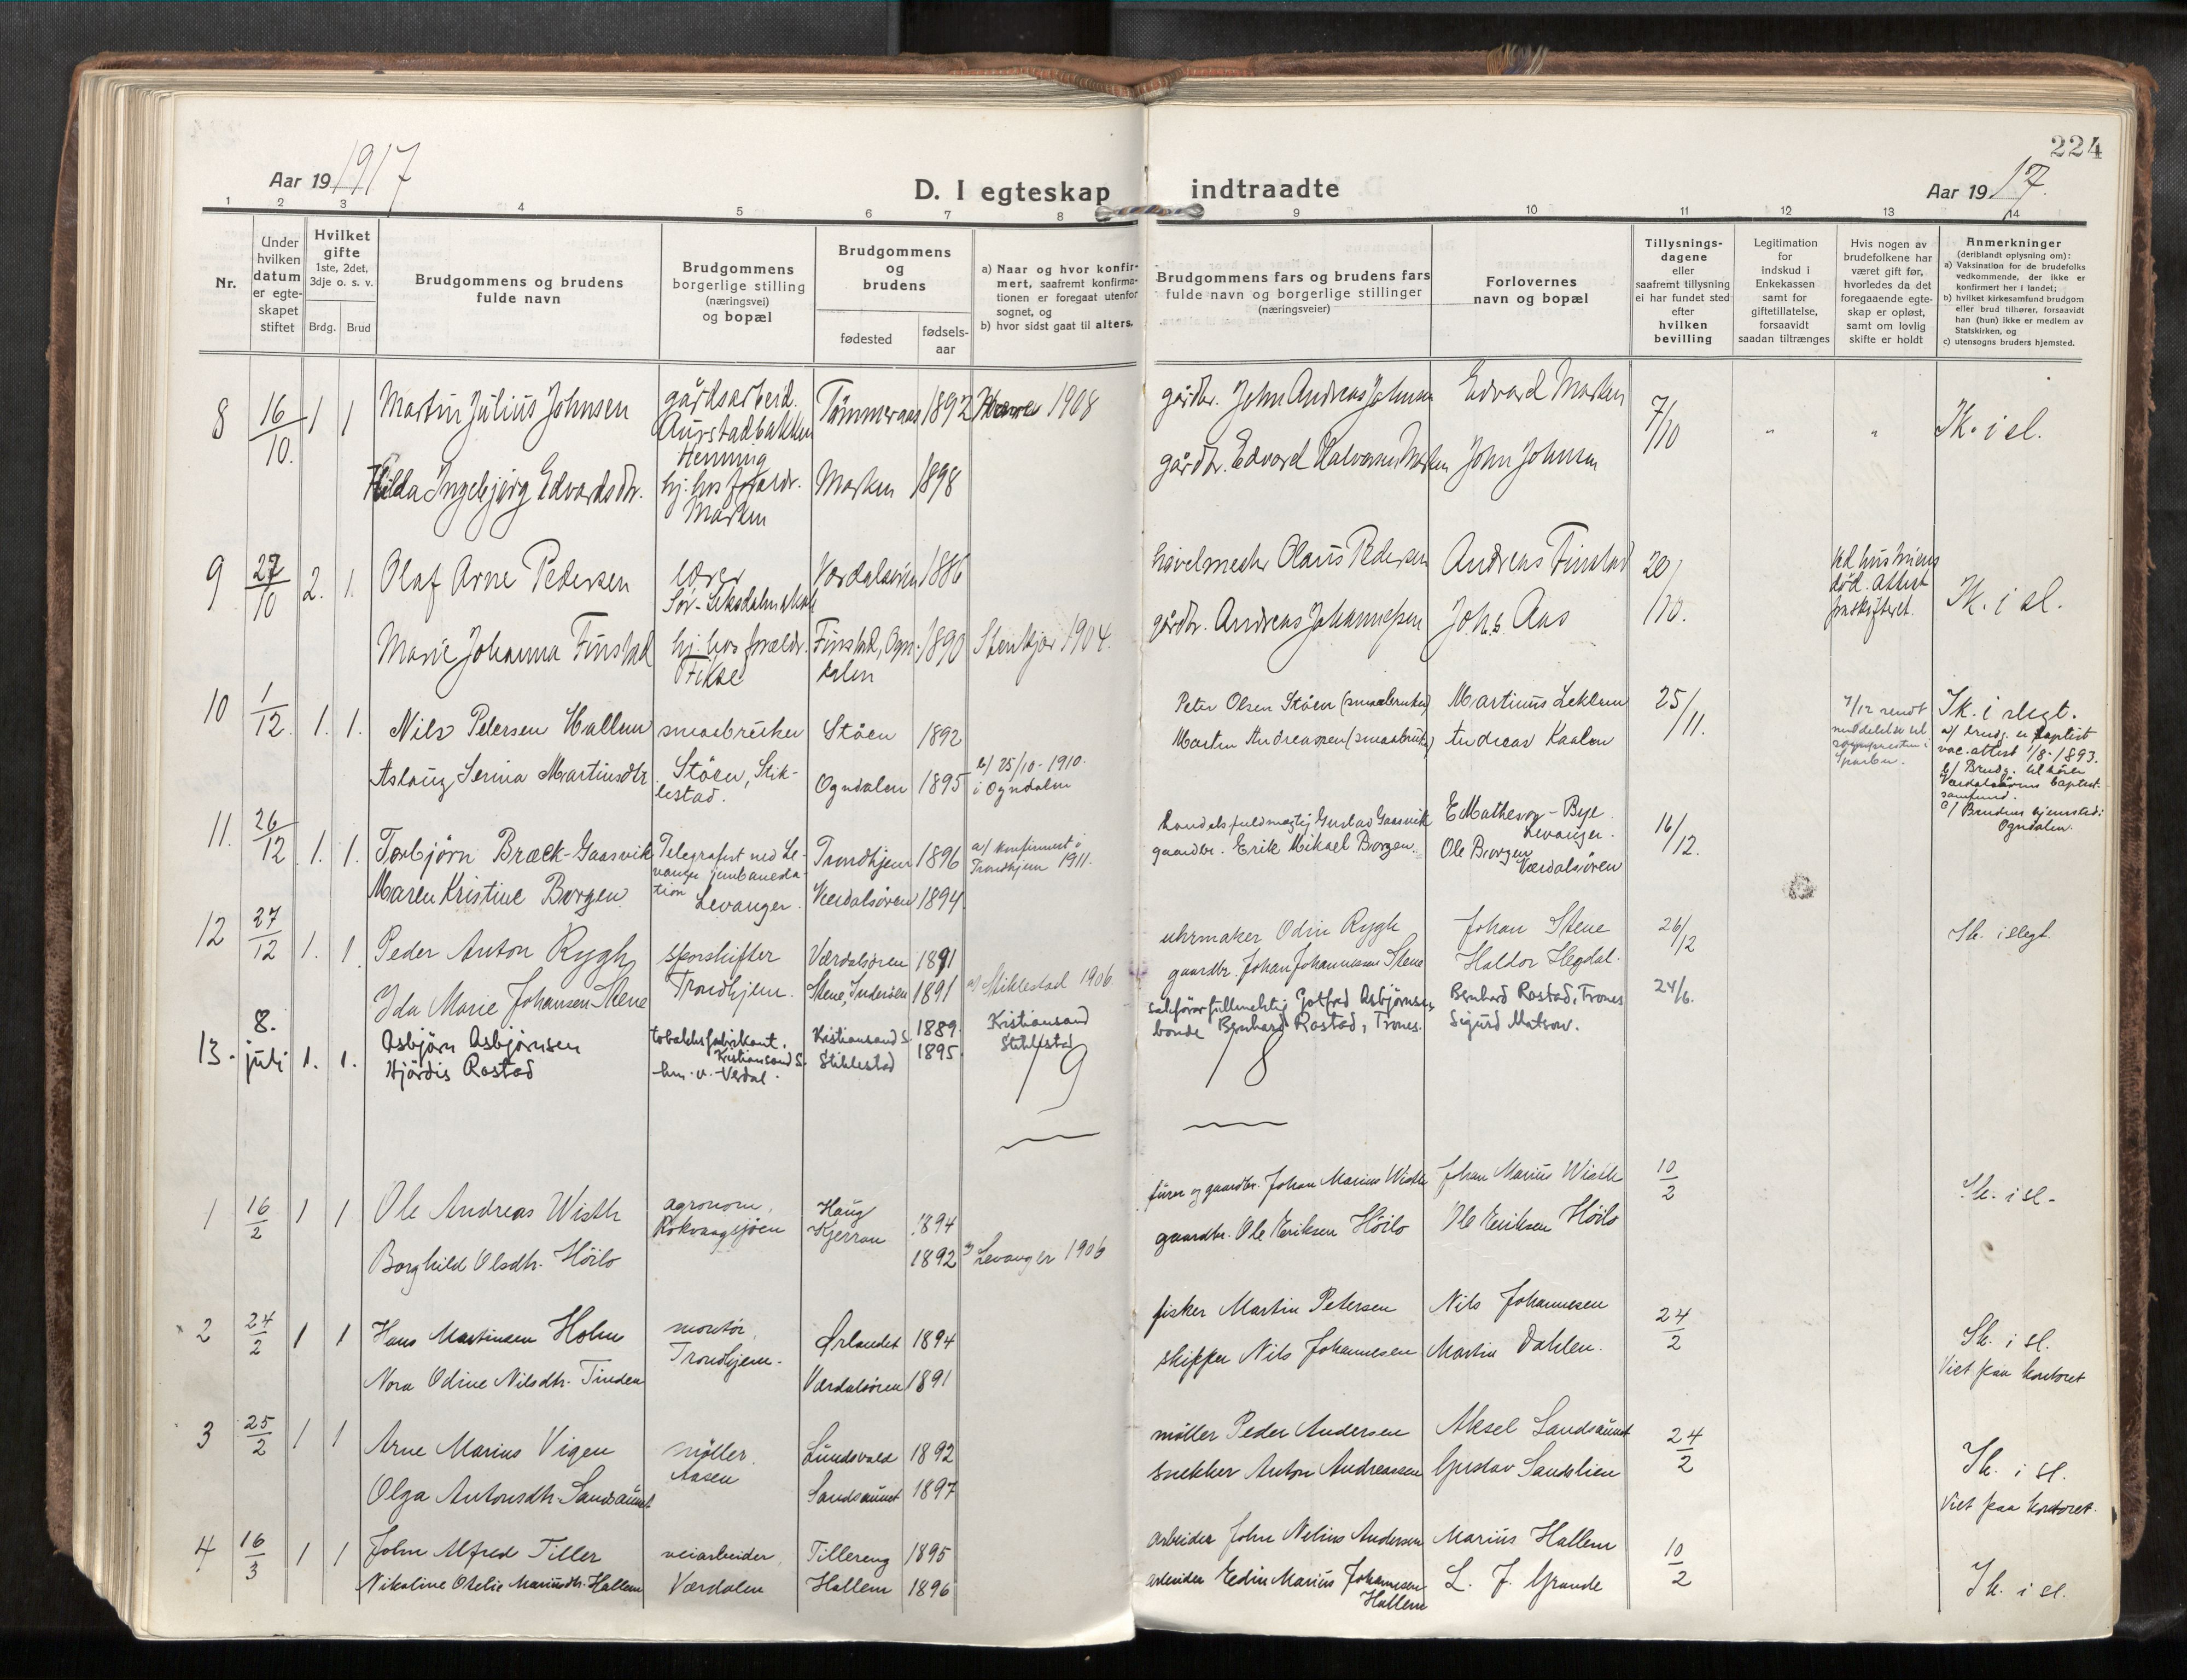 224
Aar 19 1917
D. I egteskap indtraadte
Aar 19 17.
1 2 3 4 5 6 7 8 9 10 11 12 13 14
Nr.
Under hvilken datum er egteskapet stiftet
Hvilket gifte 1ste, 2det, 3dje o. s. v.
Brdg. Brud
Brudgommens og brudens fulde navn
Brudgommens borgerlige stilling (næringsvei) og bopæl
Brudgommens og brudens
fødested
fødsels-aar
a) Naar og hvor konfirmert, saafremt konfirmationen er foregaat utenfor sognet, og
b) hvor sidst gaat til alters.
Brudgommens fars og brudens fars fulde navn og borgerlige stillinger (næringsveier)
Forlovernes navn og bopæl
Tillysningsdagene eller saafremt tillysning ei har fundet sted efter hvilken bevilling
Legitimation for indskud i Enkekassen samt for giftetillatelse, forsaavidt saadan tiltrænges
Hvis nogen av brudefolkene har været gift før, hvorledes da det foregaaende egteskap er opløst, samt om lovlig skifte er holdt
Anmerkninger (deriblandt oplysning om):
a) Vaksination for de brudefolks vedkommende, der ikke er konfirmert her i landet;
b) hvilket kirkesamfund brudgom eller brud tilhører, forsaavidt han (hun) ikke er medlem av Statskirken, og
c) utensogns bruders hjemsted.
8 16/10. 1 1 Martin Julius Johnsen gårdsarbeid. Aurstadbakken Henning Tømmeraas 1892 1908 gårdbr. John Andreas Johnsen Edvard Marken 7/10 " " Sk. i el.
Hilda Ingebjørg Edvardsdtr. hj. hos forældr. Marken Marken 1898 gårdbr. Edvard Halvorsen Marken John Johnsen
9 27/10 2. 1. Olaf Arne Pedersen lærer Sør-Leksdalen skole Værdalsøren 1886 Olaus Pedersen Andreas Finstad 20/10. ved hustruens død. Attest Sk. i el.
Marie Johanna Finstad hj. hos forældr. Fikse Finstad, Ogndalen 1890 Stenkjær 1904. gårdbr. Andreas Johannessen Johs Aas
10 1/12 1. 1. Nils Petersen Hallem smaabruker Stöen 1892 Peter Olsen Stöen (smaabruker) Martinus Leklem 25/11. 7/12 sendt meddelelse til sognepresten i Sparbu. Sk. i elegt.
Aslaug Serina Martinsdtr. Stöen, Stiklestad. Ogndalen 1895 b/ 25/10-1910. i Ogndalen Martin Andreassen (smaabruker) Andreas Kaalen
a/ brudg. er baptist vac. attest 1/8-1893.
b/ Brudg. tilhører Værdalsørens baptistsamfund.
c/ Brudens hjemsted: Ogndalen.
11. 26/12 1. 1. Torbjørn Bræck-Gaasvik Telegrafist ved Levanger jernbanestation Levanger. Trondhjem 1896 a/ konfirmert i Trondhjem 1911. handelsfuldmægtig Gustav Gaasvik E Matheson-Bye Levanger. 16/12.
Maren Kristine Borgen Værdalsøren 1894 gaardbr. Erik Mikael Borgen. Ole Borgen Værdalsøren
12 27/12 1. 1. Peder Anton Rygh sporskifter Trondhjem. Værdalsøren 1891 uhrmaker Odin Rygh Johan Stene 26/12 Sk. i elegt.
Ida Marie Johansen-Stene Stene, Inderøen 1891 a/ Stiklestad 1906 gaardbr. Johan Johannessen Stene Haldor Hegdal.
13. 8. juli 1. 1. Asbjörn Asbjörnsen tobakksfabrikant. Kristiansand S. Kristiansand S. 1889. Kristiansand sakförerfullmektig Gotfred Asbjörnsen Bernhard Rostad, Trones 24/6.
Hjördis Rostad hm. v. Verdal. Stiklestad 1895. Stiklestad bonde Bernhard Rostad, Trones. Sigurd Matson.
19 18
1 16/2 1 1 Ole Andreas Wisth agronom, Rokvaagsjöen Haug Kjerran 1894 furer og gaardbr. Johan Marius Wisth Johan Marius Wisth 10/2 Sk. i el.
Borghild Olsdtr. Höilo 1892 Levanger 1906 gaardbr. Ole Eriksen Höilo Ole Eriksen Höilo
2 24/2 1 1 Hans Martinsen Holm montör, Trondhjem. Ørlandet 1894 fisker Martin Petersen Nils Johannesen 24/2 Sk. i el.
Nora Odine Nilsdtr. Tinden Værdalsøren 1891 skipper Nils Johannesen Martin Dahlen. Viet paa kontoret
3 25/2 1 1 Arne Marius Vigen möller. Aasen Lundsvald 1892 möller Peder Andersen Aksel Landsaunet 24/2 Sk. i el.
Olga Antonsdtr. Sandsaunet Sandsaunet 1897 snekker Anton Andreassen Gustav Sandslien Viet paa kontoret.
4 16/3 1 1 John Alfred Tiller veiarbeider, Værdalen Tillereng 1895 arbeider John Nelius Andersen Marius Hallem 10/2 Sk. i el.
Nikoline Otelie Mariusdtr. Hallem Hallem 1896 arbeider Edin Marius Johannesen Hallem L. J. Grande